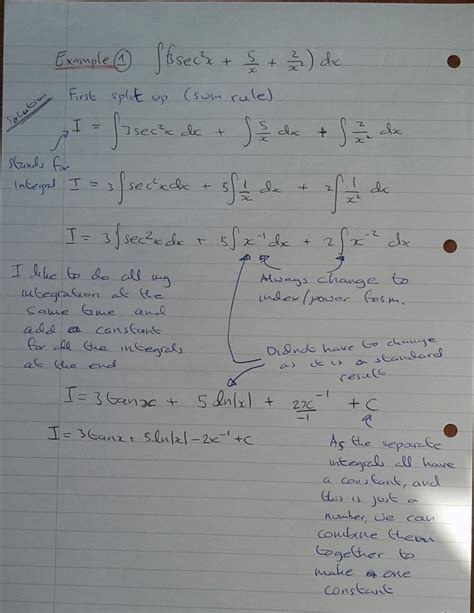 Example ① ∫(3sec²x + 5/x + 2/x²) dx
Solution
First split up (sum rule)
I = ∫3sec²x dx + ∫5/x dx + ∫2/x² dx
Stands for
integral
I = 3∫sec²x dx + 5∫1/x dx + 2∫1/x² dx
I = 3∫sec²x dx + 5∫x⁻¹ dx + 2∫x⁻² dx
I like to do all my
integration at the
same time and
add a constant
for all the integrals
at the end
Always change to
index/power form.
Didnt have to change
as it is a standard
result
I = 3tanx + 5ln|x| + 2x⁻¹/-1 + C
I = 3tanx + 5ln|x| - 2x⁻¹ + C
As the separate
integrals all have
a constant, and
this is just a
number, we can
combine them
together to
make one
constant